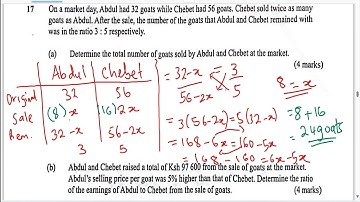 17 On a market day, Abdul had 32 goats while Chebet had 56 goats. Chebet sold twice as many
goats as Abdul. After the sale, the number of the goats that Abdul and Chebet remained with
was in the ratio 3 : 5 respectively.
(a) Determine the total number of goats sold by Abdul and Chebet at the market.
(4 marks)
Abdul Chebet
Original 32 56
Sale (8) x (16) 2x
Rem. 32-x 56-2x
3 5
= 32-x / 56-2x = 3/5
= 3(56-2x) = 5(32-x)
= 168-6x = 160-5x
= 168-160 = 6x-5x
8 = x
= 8 + 16
= 24 goats
(b) Abdul and Chebet raised a total of Ksh 97 600 from the sale of goats at the market.
Abdul's selling price per goat was 5% higher than that of Chebet. Determine the ratio
of the earnings of Abdul to Chebet from the sale of goats. (4 marks)